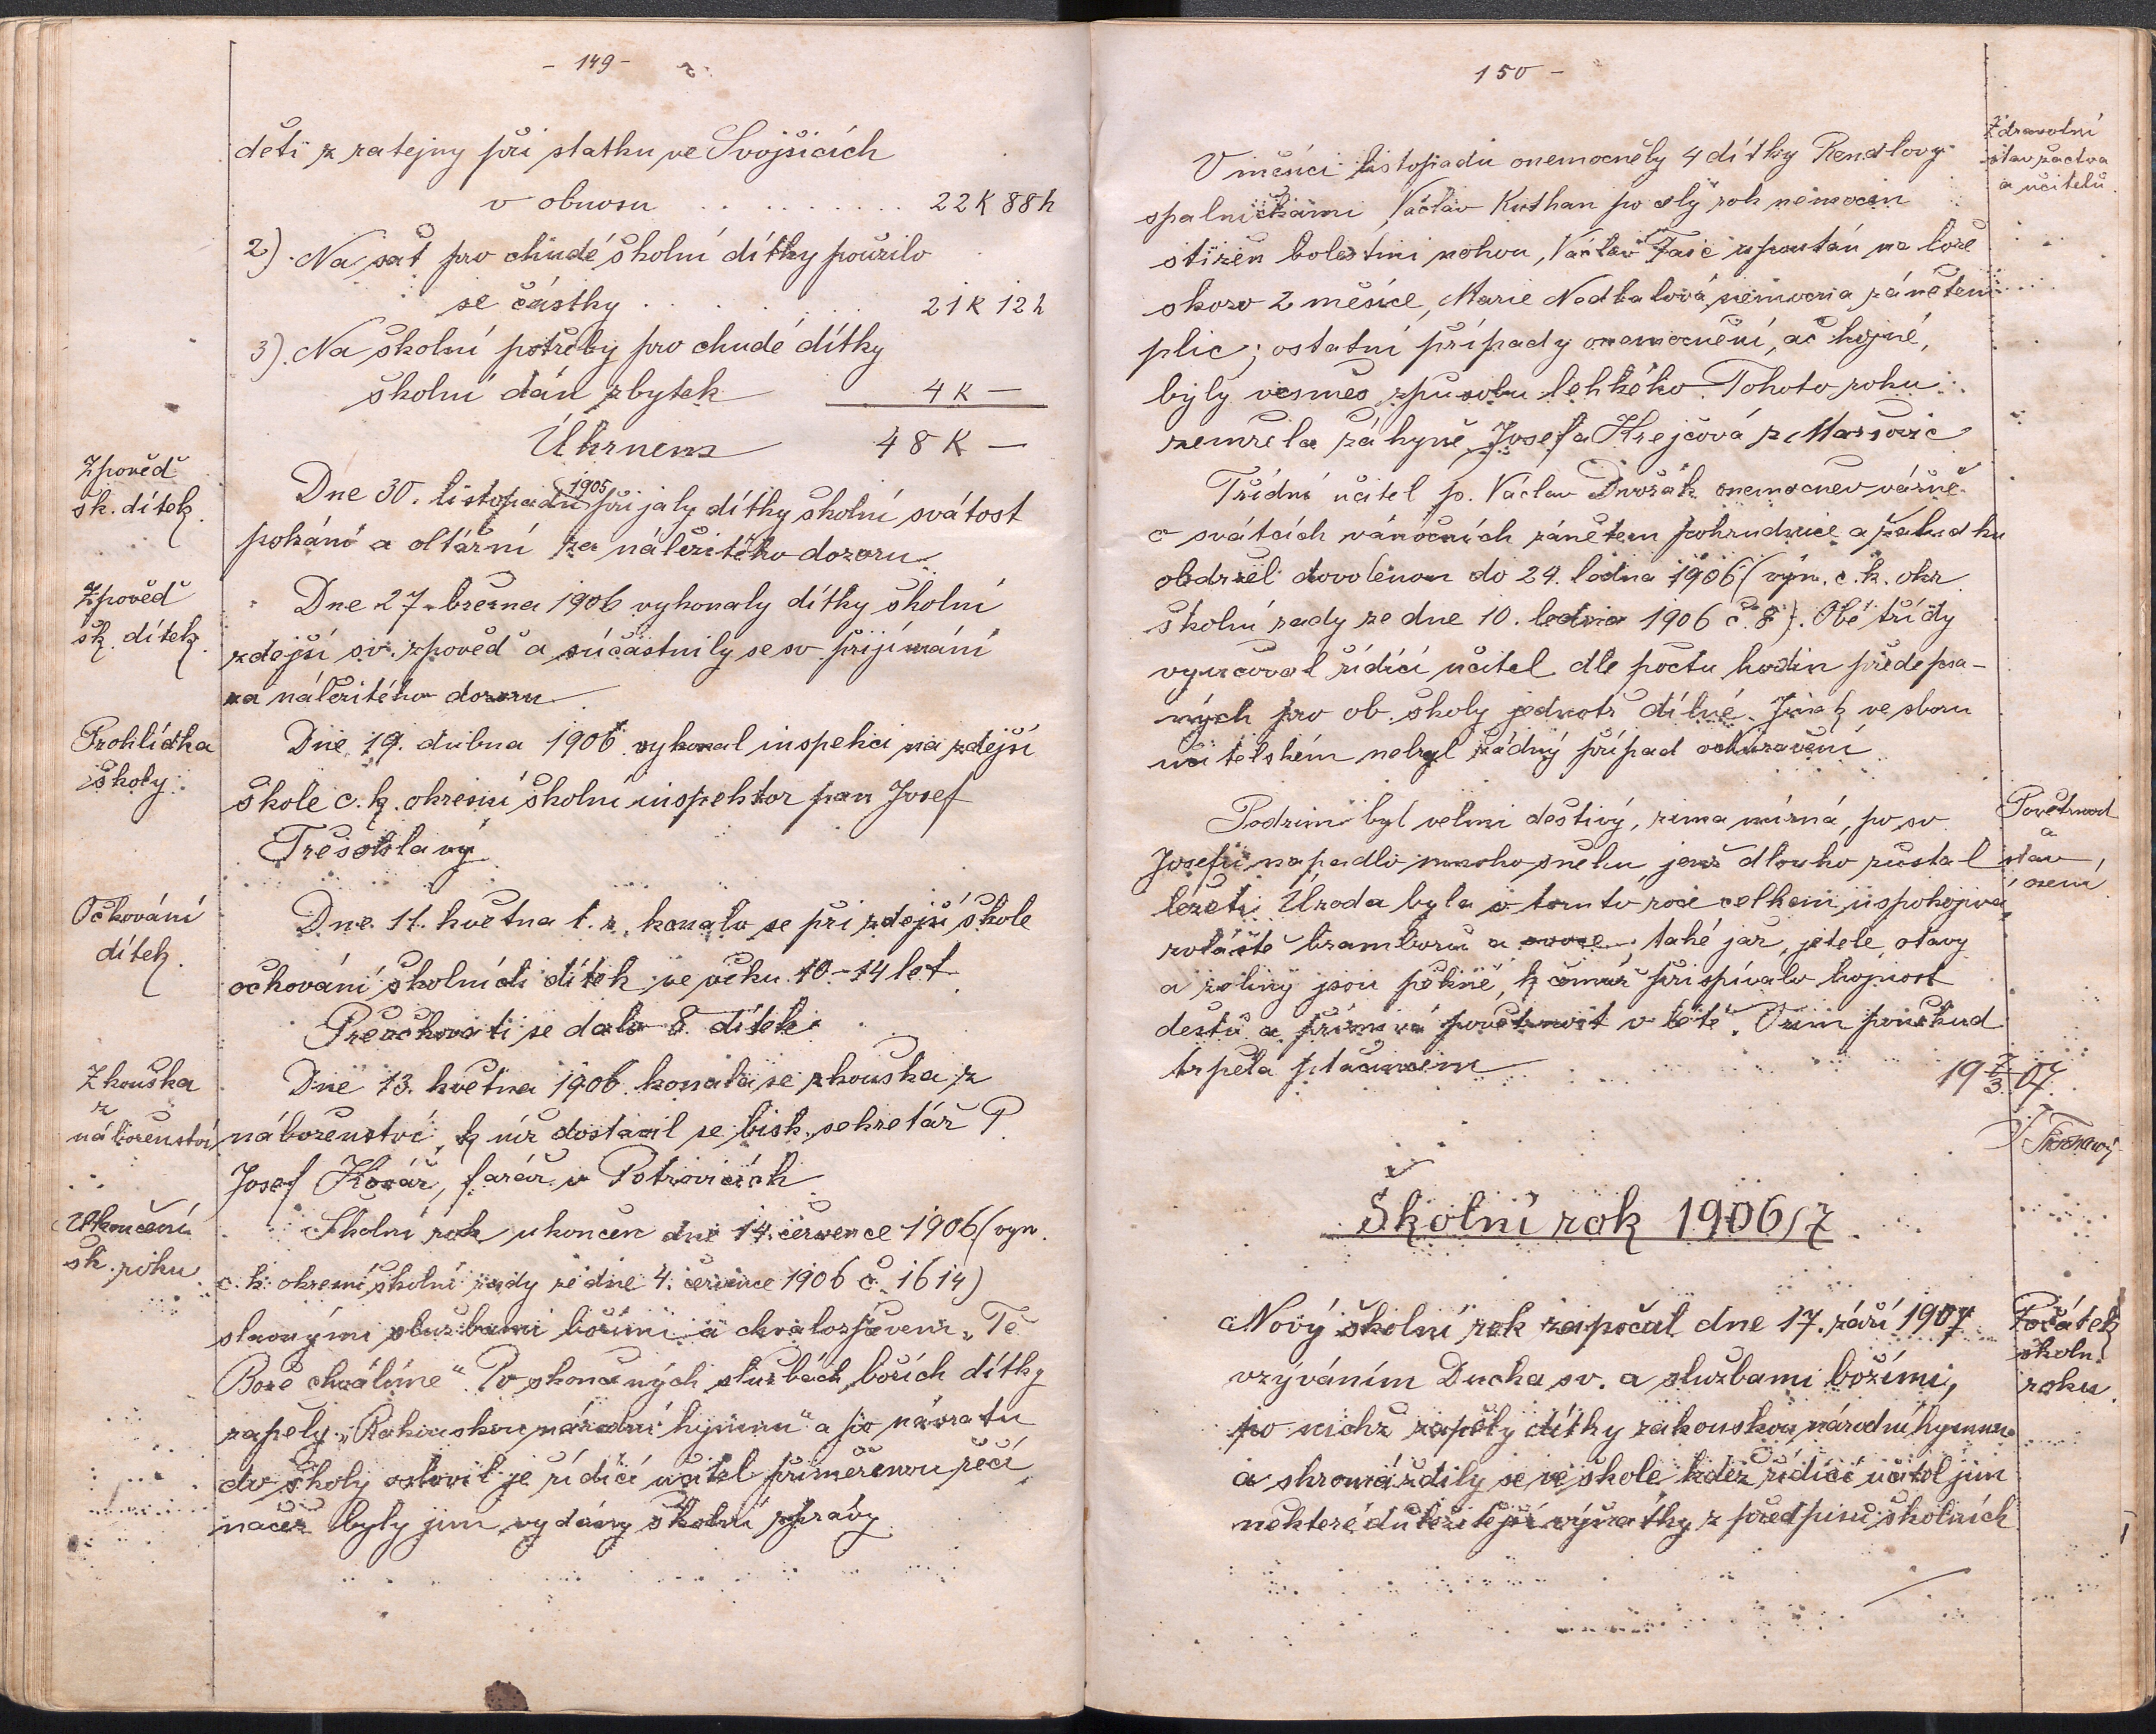 - 149 -
děti z ratejny při statku ve Svojšicích
v obnosu . . . . . . . . . 22 K 88 h
2). Na šat pro chudé školní dítky použilo
se částky . . . . . . 21 K 12 h
3). Na školní potřeby pro chudé dítky
školní dán zbytek 4 K —
Úhrnem 48 K —
Zpověď
šk. dítek.
Dne 30. listopadu 1905 přijaly dítky školní svátost
pokání a oltářní za náležitého dozoru.
Zpověď
šk. dítek.
Dne 27. března 1906 vykonaly dítky školní
zdejší sv. zpověď a súčastnily se sv. přijímání
za náležitého dozoru.
Prohlídka
školy.
Dne 19. dubna 1906 vykonal inspekci na zdejší
škole c. k. okresní školní inspektor pan Josef
Třešohlavý.
Očkování
dítek.
Dne 11. května t. r. konalo se při zdejší škole
očkování školních dítek ve věku 10-14 let.
Přeočkovati se dalo 8 dítek.
Zkouška
z
náboženství
Dne 13. května 1906 konala se zkouška z
náboženství, k níž dostavil se bisk. sekretář P.
Josef Kovář, farář v Petrovicích.
Ukončení
šk. roku
Školní rok ukončen dne 14. července 1906 (vyn.
c. k. okresní školní rady ze dne 4. července 1906 č. 1614)
slavnými službami božími a chvalozpěvem „Tě
Bože chválíme“. Po skončených službách božích dítky
zapěly „Rakouskou národní hymnu“ a po návratu
do školy oslovil je řídící učitel přiměřenou řečí
načež byly jim vydány školní zprávy.
150 -
Zdravotní
stav žactva
a učitelů.
V měsíci listopadu onemocněly 4 dítky Rendlovy
spalničkami, Václav Kuthan po celý rok nemocen
stižen bolestmi nohou, Václav upoután na lože
skoro 2 měsíce, Marie Nedbalová nemocna zánětem
plic; ostatní případy onemocnění, ač hojné,
byly vesměs způsobu lehkého. Tohoto roku
zemřela žákyně Josefa Krejčová z Maršovic.
Třídní učitel p. Václav Dvořák onemocněv vážně
o svátcích vánočních zánětem pohrudnice a žaludku
obdržel dovolenou do 24. ledna 1906 (vyn. c. k. okr.
školní rady ze dne 10. ledna 1906 č. 8). Obě třídy
vyučoval řídící učitel dle počtu hodin předepsa-
ných pro ob. školy jednotřídní. Jinak ve sboru
učitelském nebyl žádný případ ochuravění.
Povětrnost
a
stav
osení
Podzim byl velmi deštivý, zima mírná, po sv.
Josefu napadlo mnoho sněhu, jenž dlouho zůstal
ležeti. Úroda byla v tomto roce celkem uspokojivá,
zvláště bramborů a ovoce; také jař, jetele, otavy
a zeliny jsou pěkné, k čemuž přispívalo hojnost
deštů a příznivá povětrnost v létě. Ozim poněkud
trpěla ptactvem.
19 7/3 07.
Školní rok 1906/7.
Počátek
školn.
roku.
Nový školní rok započal dne 17. září 1907
vzýváním Ducha sv. a službami božími,
po nichž zapěly dítky rakouskou národní hymnu
a shromáždily se ve škole, kdež řídící učitel jim
některé důležitější výňatky z předpisů školních